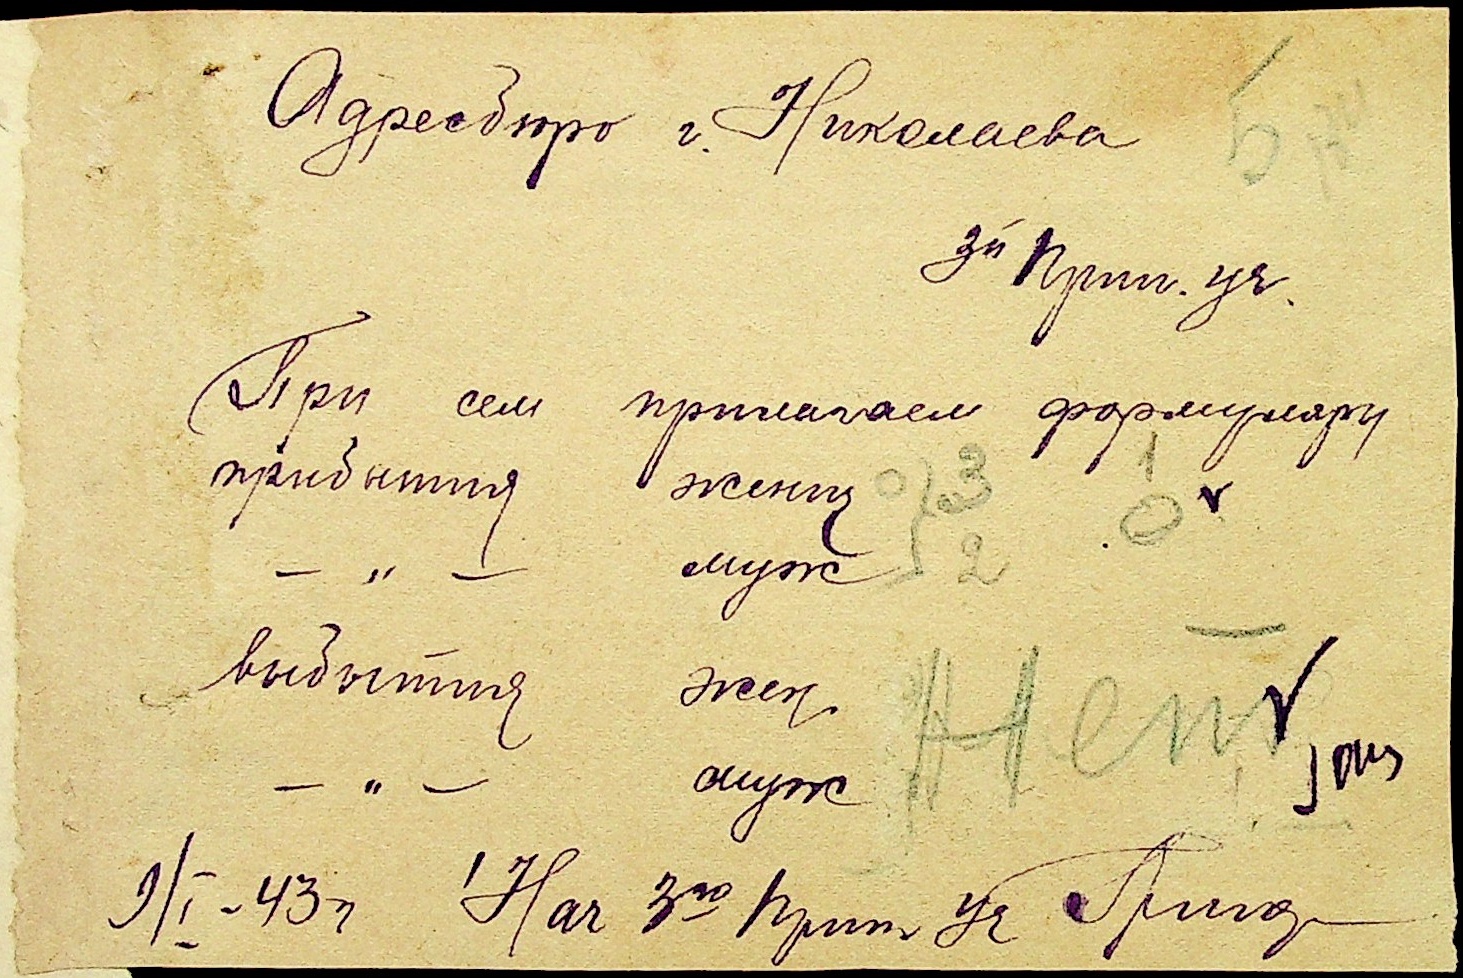 Адресбюро г. Николаева
3й Крим. уч.
При сем прилагаем формуляры
прибытия женщ 3 1
0
— " — муж 2
выбытия жен. Нет
— " — муж
9/I - 43 г Нач 3го Крим уч